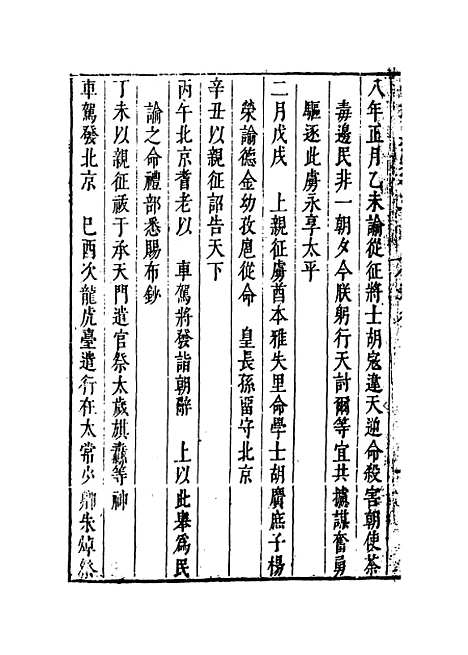 八年正月乙未諭從征將士胡寇違天逆命殺害朝使荼
毒邊民非一朝夕今朕躬行天討爾等宜共攄謀奮勇
驅逐此虜永享太平
二月戊戌 上親征虜酋本雅失里命學士胡廣庶子楊
榮諭德金幼孜扈從命 皇長孫留守北京
辛丑以親征詔告天下
丙午北京耆老以 車駕將發詣朝辭 上以此舉為民
諭之命禮部悉賜布鈔
丁未以親征祓于承天門遣官祭太歲旗纛等神
車駕發北京 巳酉次龍虎臺遣行在太常少卿朱焯祭